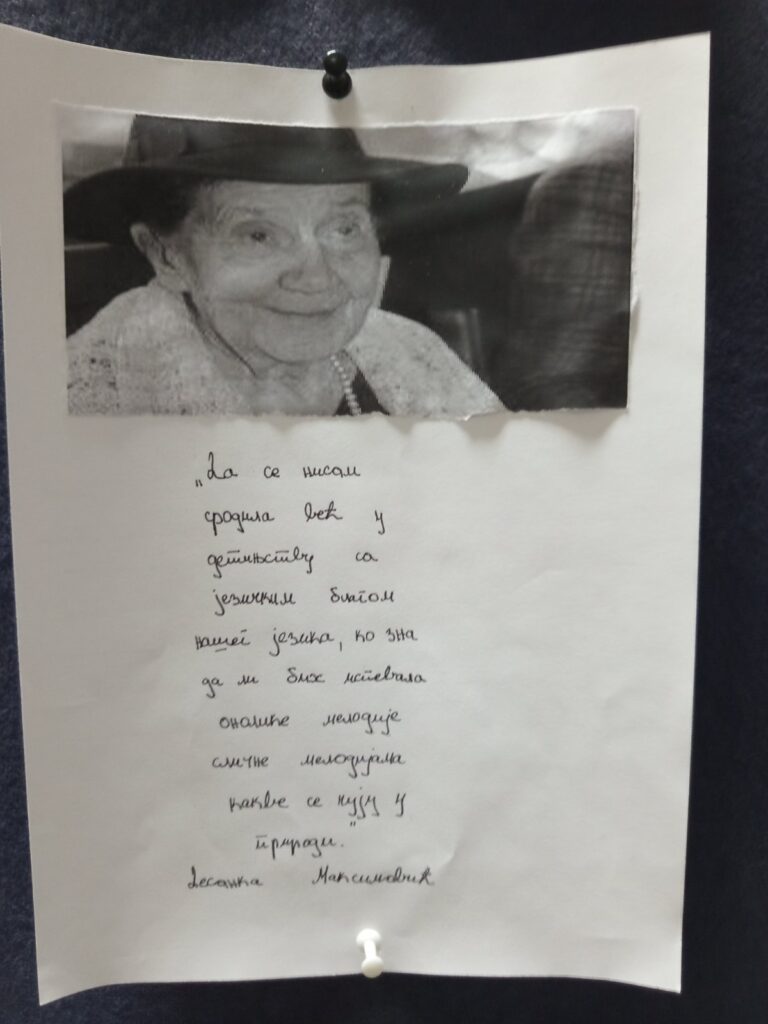 „Да се нисам
сродила већ у
детињству са
језичким благом
нашег језика, ко зна
да ли бих испевала
онолике мелодије
сличне мелодијама
какве се чују у
природи."
Десанка Максимовић